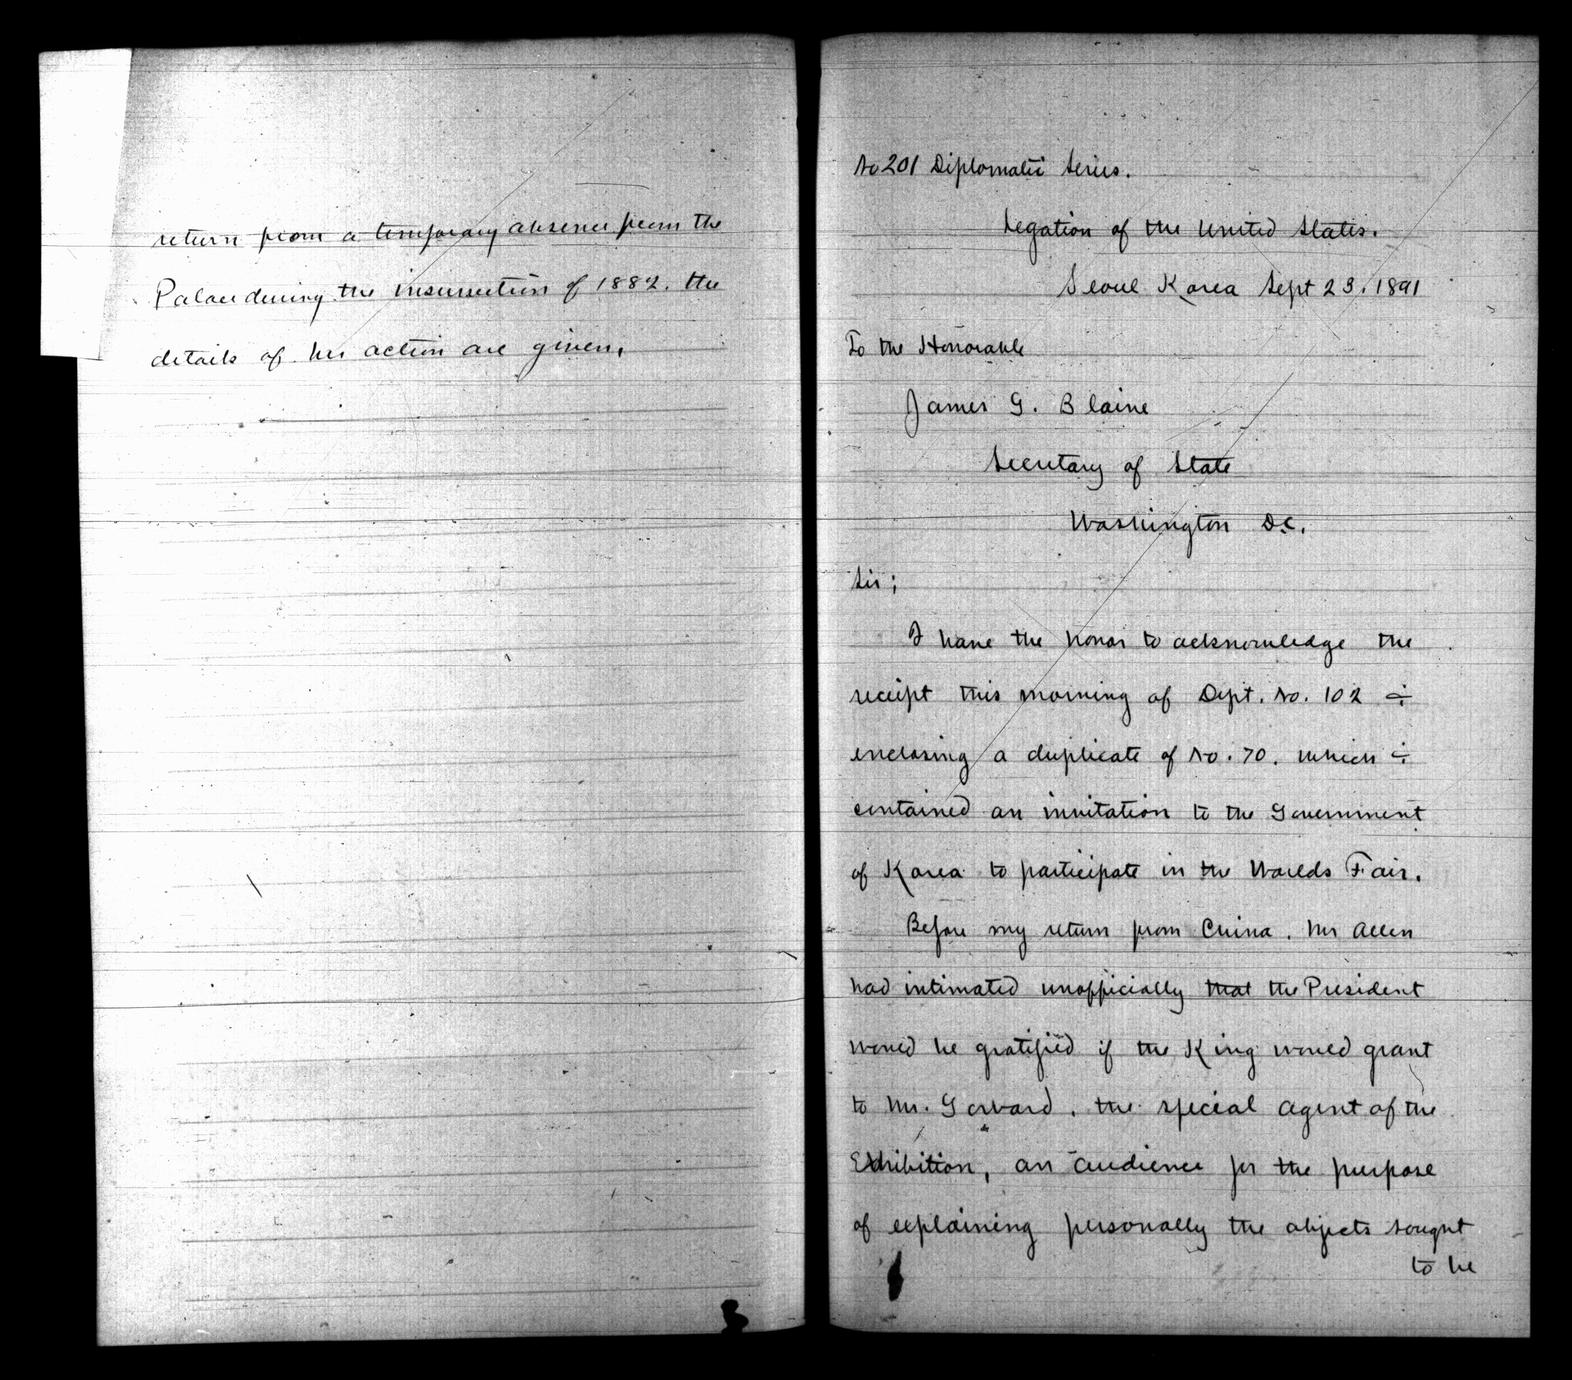 return from a temporary absence from the
Palace during the insurrection of 1882. the
details of her action are given.
No 201 Diplomatic Series.
Legation of the United States.
Seoul Korea Sept 23. 1891
To the Honorable
James G. Blaine
Secretary of State
Washington D.C.
Sir;
I have the honor to acknowledge the
receipt this morning of Dept. No. 102 ÷
enclosing a duplicate of No. 70. which ÷
contained an invitation to the Government
of Korea to participate in the Worlds Fair.
Before my return from China. Mr Allen
had intimated unofficially that the President
would be gratified if the King would grant
to Mr. Gorward. the special agent of the
Exhibition, an audience for the purpose
of explaining personally the objects sought
to be